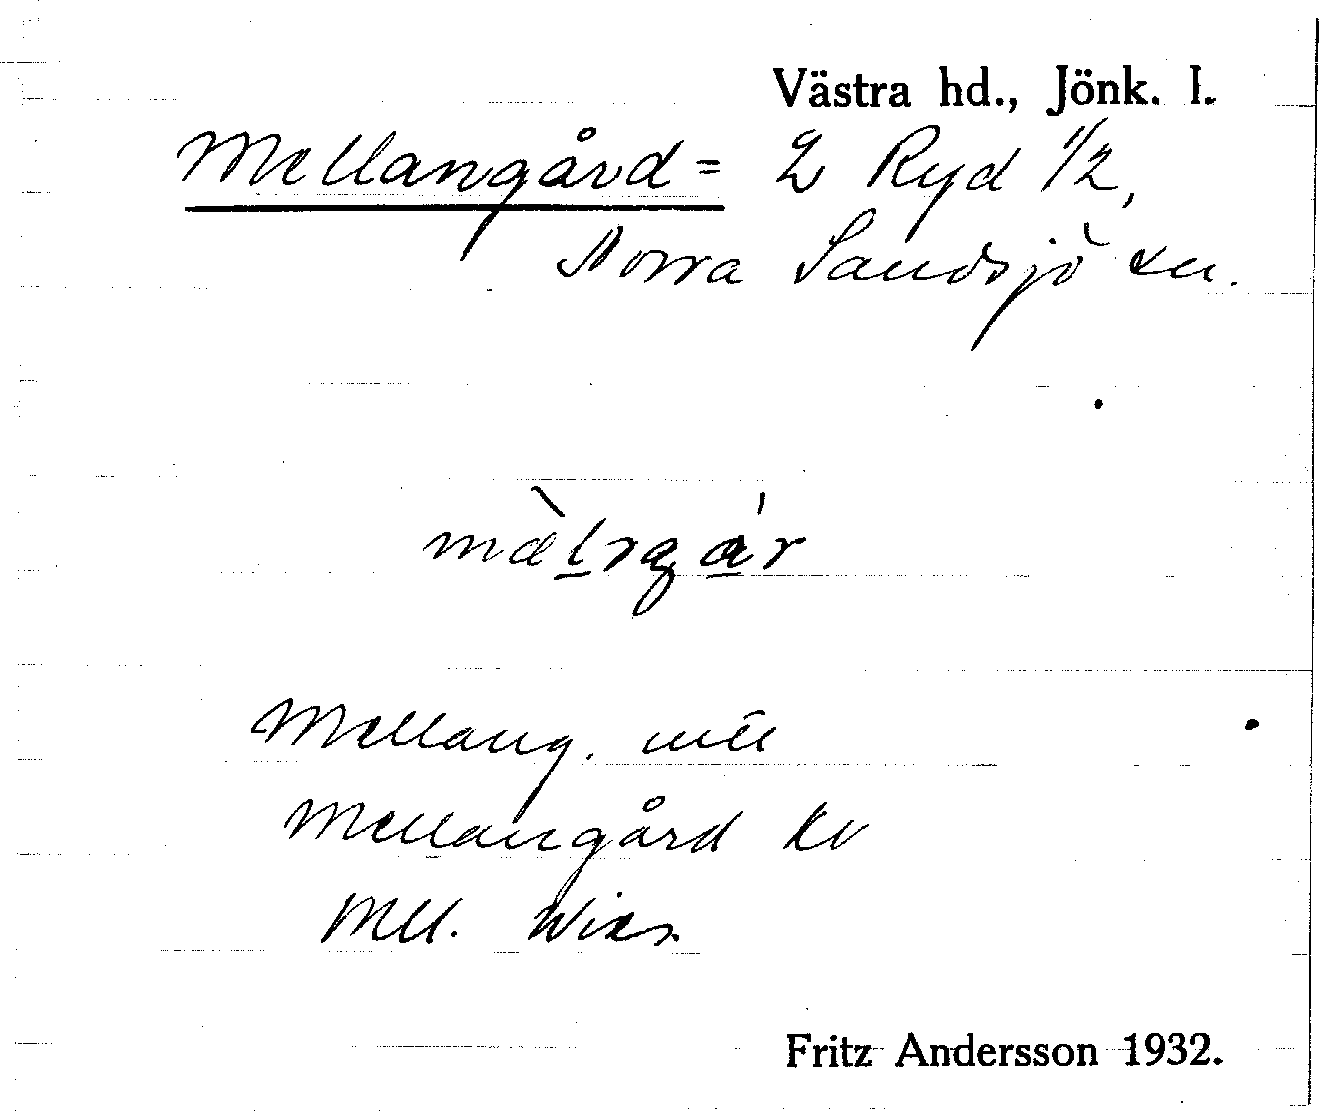 Västra hd., Jönk. l.
Mellangård = 2 Ryd 1/2,
Norra Sandsjö sn.
Mellang.
Mellangård kv
Mll.
Fritz Andersson 1932.